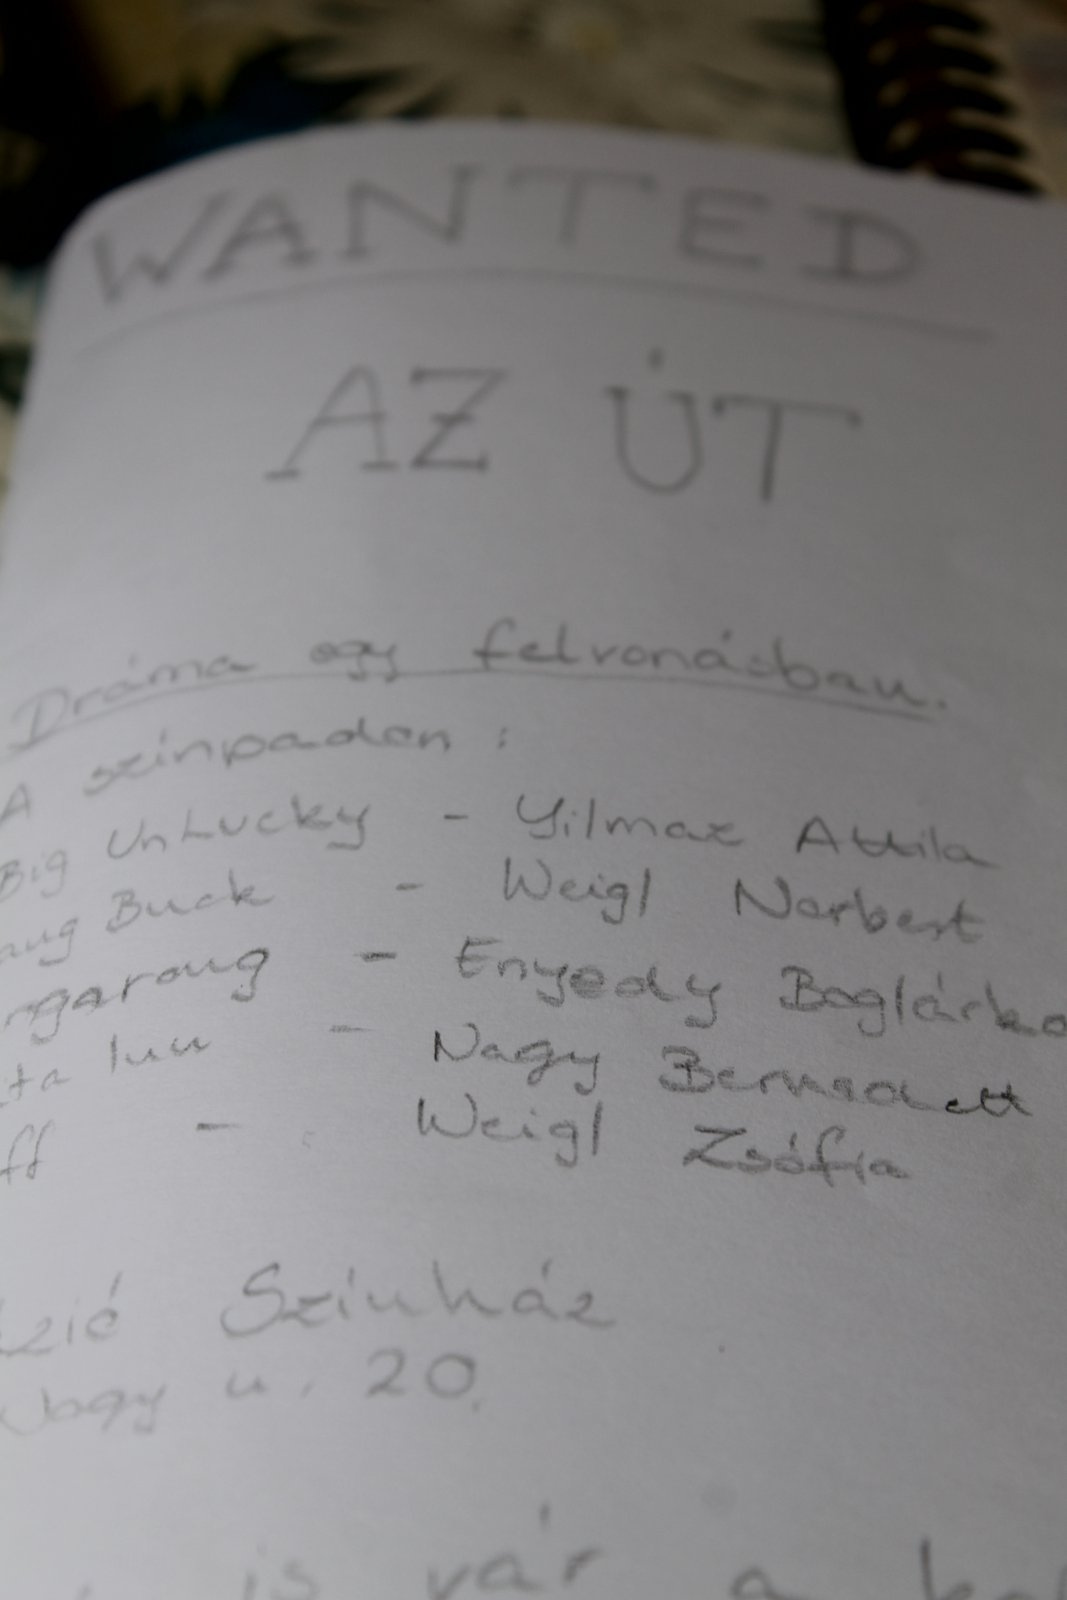 WANTED
AZ ÚT
Dráma egy felvonásban.
A színpadon:
Big UnLucky - Yilmaz Attila
Buck - Weigl Norbert
- Enyedy Boglárka
- Nagy Bernadett
ff - Weigl Zsófia
Színház
Nagy u. 20.
is vár a